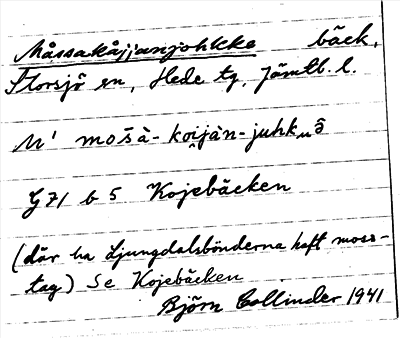 Måssakåjjanjohkke bäck,
Storsjö sn, Hede tg, Jämtb. l.
N' mosà- koijàn-juhk
G 71 b 5 Kojebäcken
(där ha Ljungdalsbönderna haft moss-
tag) Se Kojebäcken
Björn Collinder 1941